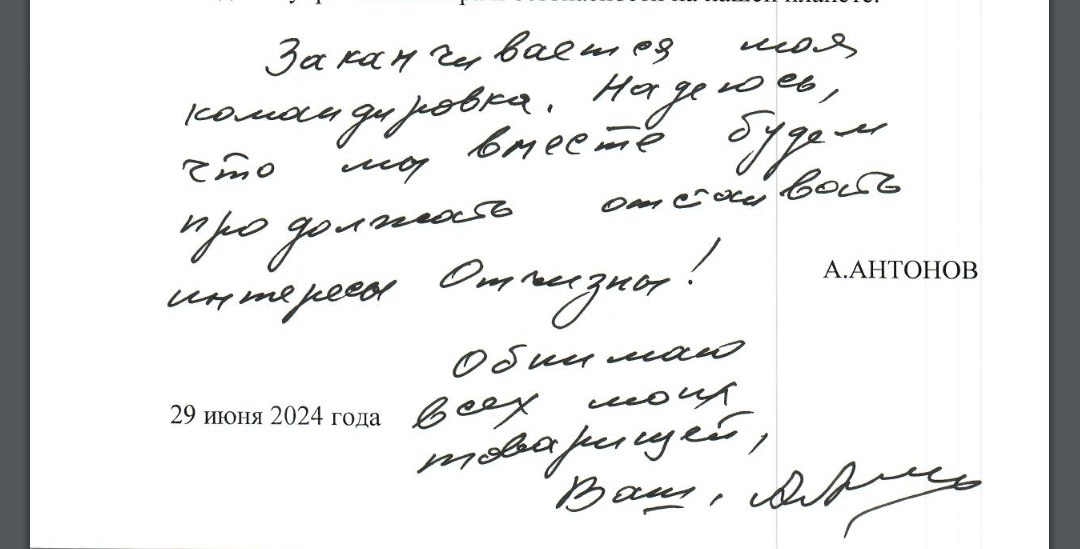 безопасности на нашей планете.
Заканчивается моя
командировка. Надеюсь,
что мы вместе будем
продолжать отстаивать
интересы Отчизны!
А.АНТОНОВ
Обнимаю
29 июня 2024 года
всех моих
товарищей,
Ваш,